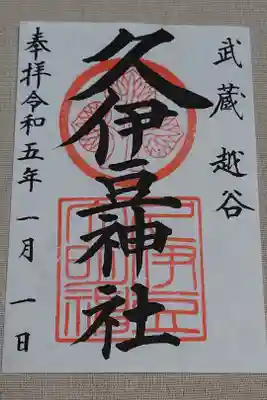 武蔵 越谷
久伊豆神社
奉拝令和五年 一月 一日